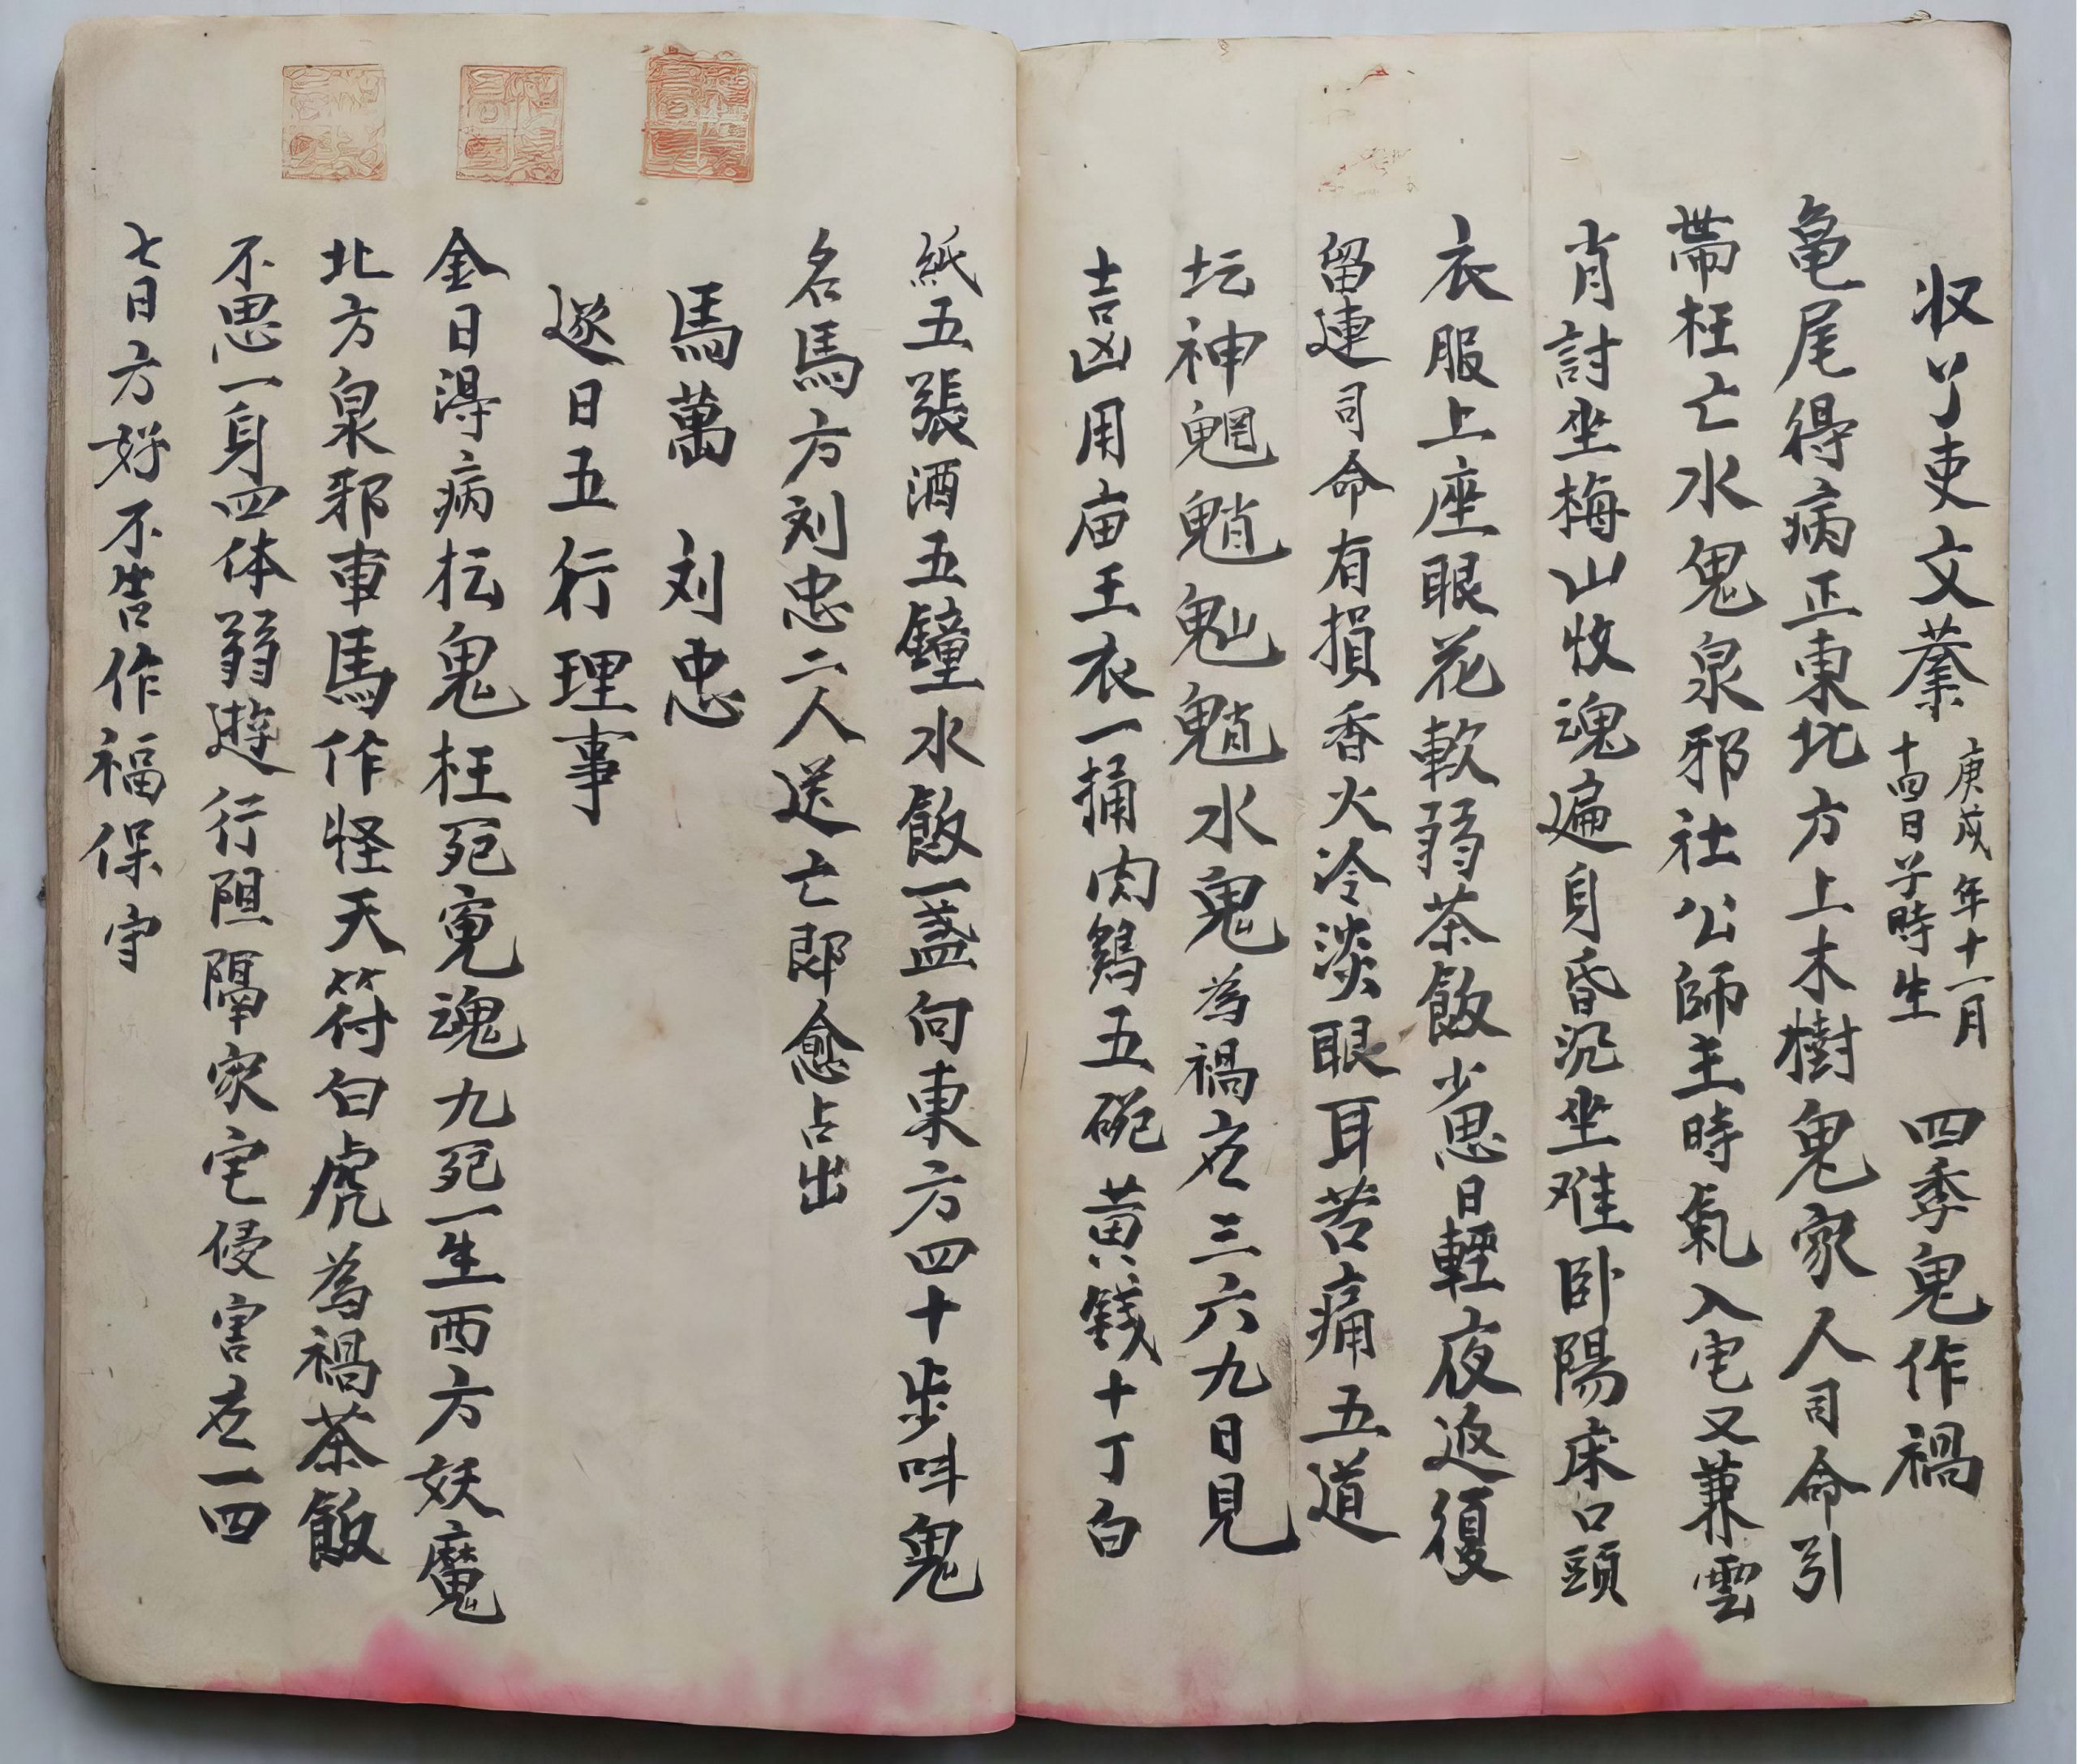 收丫吏文蓁
庚戌年十一月
十四日子時生
四季鬼作禍
亀尾得病正東北方上木樹鬼家人司命引
帶枉亡水鬼泉邪社公師主時氣入宅又兼雲
肖討坐梅山收魂遍身昏沉坐难卧陽床口頭
衣服上座眼花軟弱茶飯少思日輕夜返復
留連司命有損香火冷淡眼耳苦痛五道
坛神魍魈鬽魈水鬼為禍在三六九日見
吉凶用庙王衣一捅肉鷄五碗黃錢十丁白
紙五張酒五鐘水飯一盏向東方四十步呌鬼
名馬方刘忠二人送亡即愈占出
馬萬 刘忠
逐日五行理事
金日得病抎鬼枉死寃魂九死一生西方妖魔
北方泉邪車馬作怪天符白虎為禍茶飯
不思一身四体弱遊行阻隔家宅侵害在一四
七日方好不告作福保守